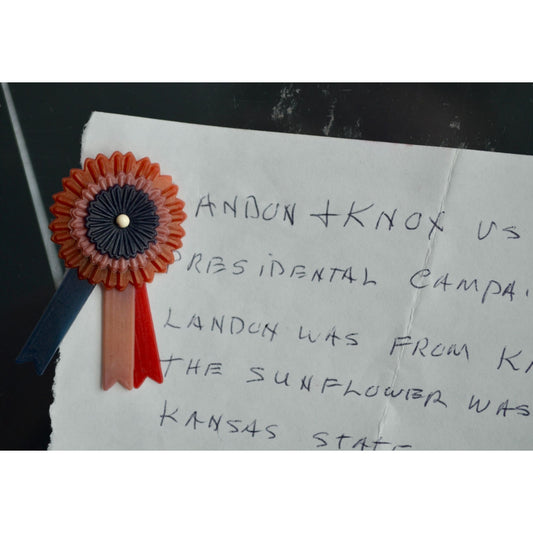 ANDON + KNOX US
PRESIDENTAL CAMPA
LANDON WAS FROM KA
THE SUNFLOWER WAS
KANSAS STATE